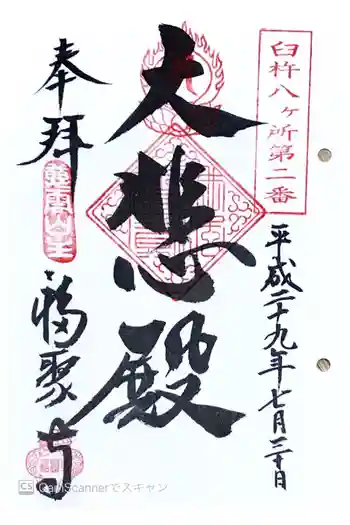 臼杵八ヶ所第二番
平成二十九年七月二十日
大悲殿
奉拝
福聚寺
CS CamScannerでスキャン